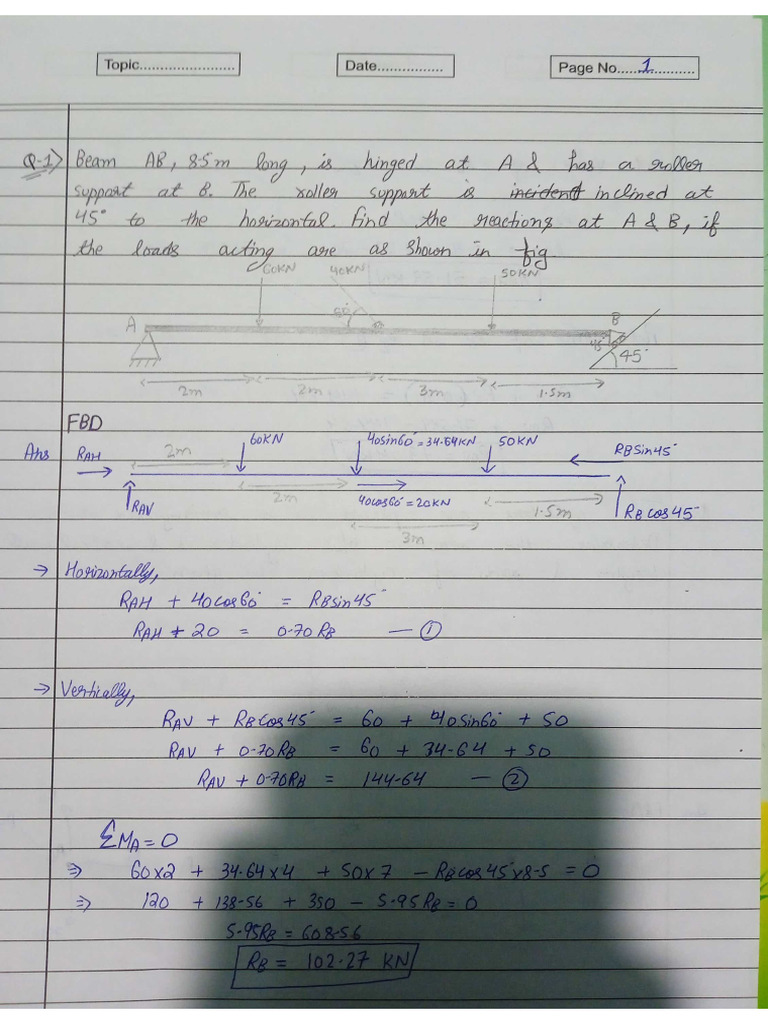 Topic........................ Date................ Page No......1............
Q-1) Beam AB, 8.5m long, is hinged at A & has a roller
support at B. The roller support is incident inclined at
45° to the horizontal. Find the reactions at A & B, if
the loads acting are as shown in fig
60KN 40KN 50KN
60°
A B
45° 45°
2m 2m 3m 1.5m
FBD
Ans RAH 2m 60KN 40sin60° = 34.64KN 50KN RBsin45°
RAV 2m 40cos60° = 20KN 1.5m RBcos45°
3m
→ Horizontally,
RAH + 40cos60° = RBsin45°
RAH + 20 = 0.70RB — ①
→ Vertically,
RAV + RBcos45° = 60 + 40sin60° + 50
RAV + 0.70RB = 60 + 34.64 + 50
RAV + 0.70RB = 144.64 — ②
ΣMA = 0
⇒ 60×2 + 34.64×4 + 50×7 - RBcos45°×8.5 = 0
⇒ 120 + 138.56 + 350 - 5.95RB = 0
5.95RB = 608.56
RB = 102.27 KN